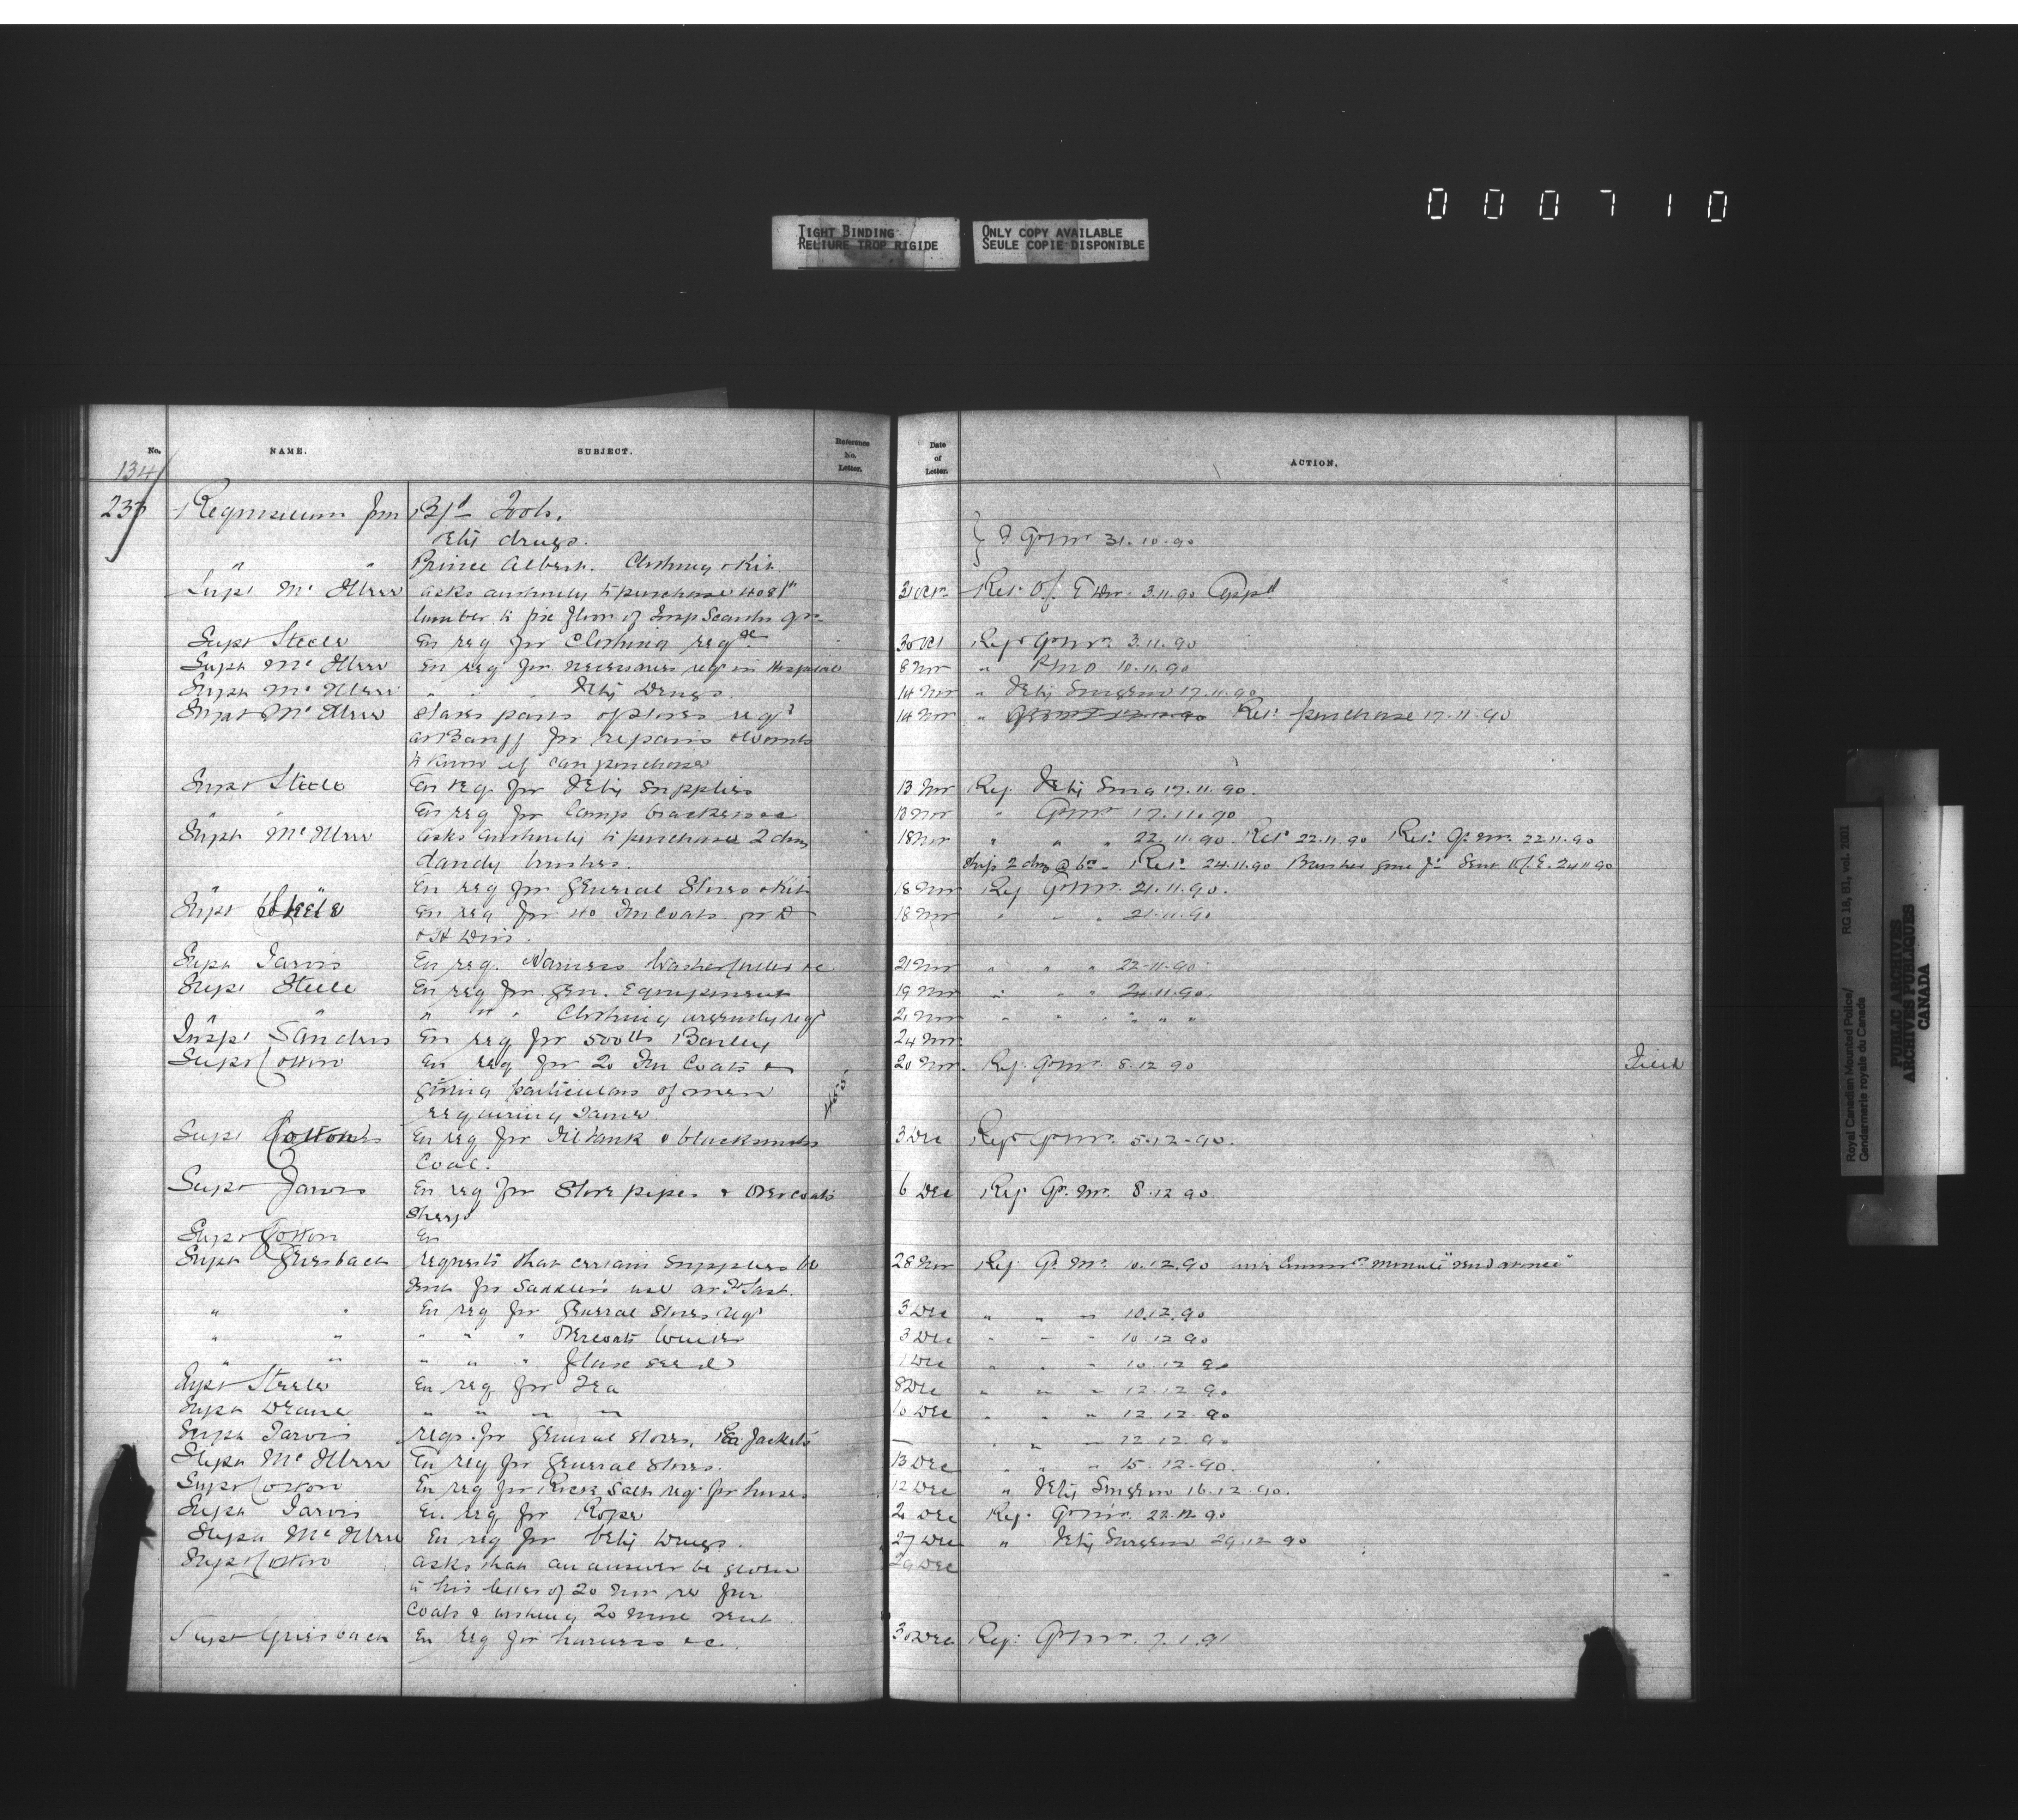 0 0 0 7 1 0
TIGHT BINDING
RELIURE TROP RIGIDE
ONLY COPY AVAILABLE
SEULE COPIE DISPONIBLE
No. NAME. SUBJECT. Reference No. Letter. Date of Letter. ACTION.
134
235 Requisitions for Tools.
Vety drugs. Q Mr 31.10.90
" " Prince Albert. Clothing & Kit
Supt McIllree asks authority to purchase 31 Oct 3.11.90 App'd
lumber to fix floor of Insp
Supt Steele En req for Clothing req'd &c 30 Oct Req 3.11.90
Supt McIllree En req for necessaries req in Hospital 8 Nov " 10.11.90
Supt McIllree " " " Vety Drugs. 14 Nov " Vety Surgeon 17.11.90
Supt McIllree States parts of stoves req'd 14 Nov " purchase 17.11.90
at Banff for repairs & wants
to know if can purchase
Supt Steele En req for Vety Supplies 13 Nov Req Vety Surg 17.11.90.
" En req for Lamp brackets &c 13 Nov " 17.11.90
Supt McIllree asks authority to purchase 2 doz 18 Nov " " " 22.11.90 22.11.90 22.11.90
dandy brushes. 2 doz @ 24.11.90 Sent 24.11.90
En req for General Stores & Kit 18 Nov Req 21.11.90.
Supt Steele En req for 40 Fur Coats for D 18 Nov " " " 21.11.90
& H Divs.
Supt Jarvis En req. Harness Washer Cutter &c 21 Nov " " " 22-11-90
Supt Steele En req for Gen. Equipment 19 Nov " " " 24.11.90.
" " " " " Clothing urgently req'd 21 Nov " " " " " "
Insp Sanders En req for 500 lbs Barley 24 Nov.
Supt Cotton En req for 20 Fur Coats & 20 Nov. Req 8.12.90 Filed
giving particulars of men
requiring same
Supt Cotton En req for Oil tank & blacksmiths 3 Dec Req 5-12-90.
Coal.
Supt Jarvis En req for Stove pipes & Overcoats 6 Dec Req Qr. Mr. 8.12.90
Supt Cotton En
Supt Griesbach requests that certain supplies be 28 Nov Req Qr. Mr. 10.12.90
sent for Saddlers use at Ft Sask.
" " En req for General Stores req'd 3 Dec " " " 10.12.90
" " " " " Overcoats 3 Dec " " " 10.12.90
" " " " " flax seed 1 Dec " " " 10.12.90
Supt Steele En req for Tea 8 Dec " " " 12.12.90
Supt Deane " " " " 10 Dec " " " 12.12.90
Supt Jarvis reqs. for General stores, Pea Jackets — " " " 12.12.90
Supt McIllree En req for General Stores. 13 Dec " " " 15.12.90.
Supt Cotton En req for Rock Salt req for horses 12 Dec " Vety Surgeon 16.12.90.
Supt Jarvis En req for Rope 2 Dec Req. 22.12.90
Supt McIllree En req for Vety Drugs. 27 Dec " Vety Surgeon 29.12.90
Supt Cotton asks that an answer be given 29 Dec
to his letter of 20 Nov re fur
Coats & wishing 20 more sent
Supt Griesbach En req for harness &c. 30 Dec Req: 7.1.91
Royal Canadian Mounted Police/ RG 18, B1, vol. 2001
Gendarmerie royale du Canada
PUBLIC ARCHIVES
ARCHIVES PUBLIQUES
CANADA